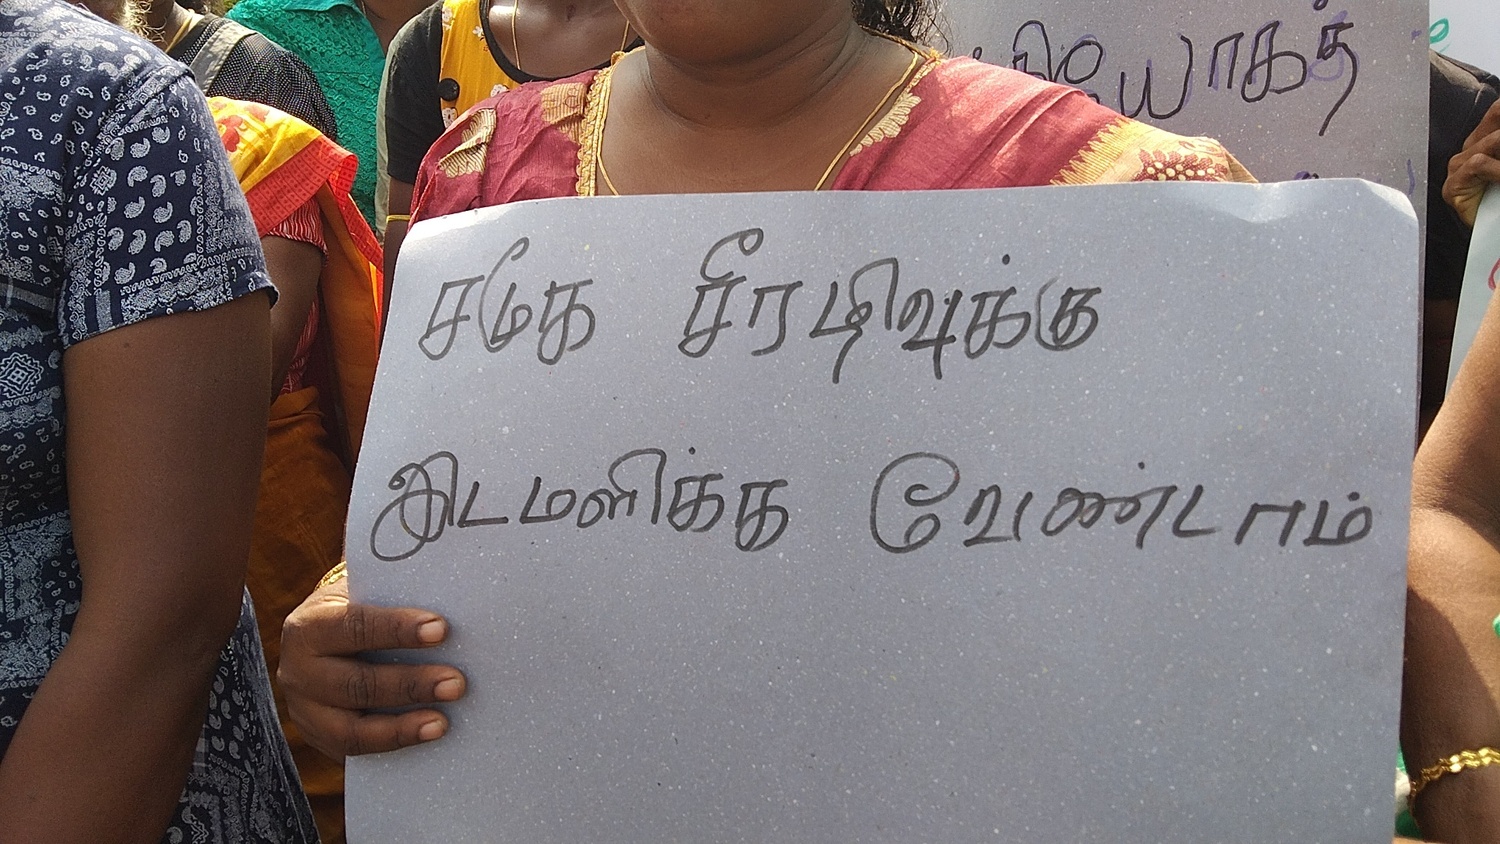 சமூக சீரழிவுக்கு
இடமளிக்க வேண்டாம்